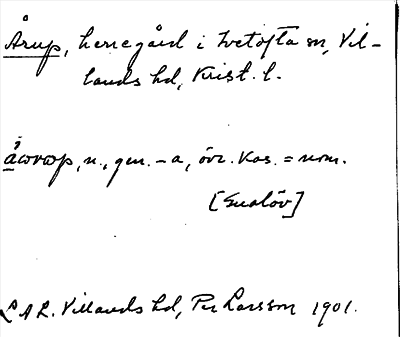 Årup, herregård i Ivetofta sn, Vil-
lands hd, Krist. l.
åwrwp, n., gen. -a, övr. kas. = nom.
[Snslöv]
L A L. Villands hd, Per Larsson 1901.